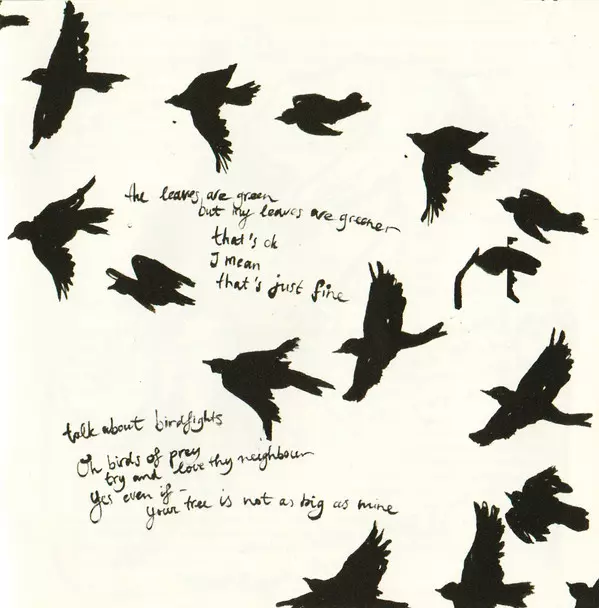 the leaves are green
but my leaves are greener
that's ok
I mean
that's just fine
talk about birdfights
Oh birds of prey
try and love thy neighbour
Yes even if -
your tree is not as big as mine